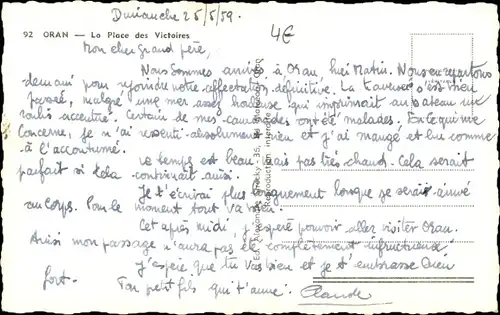 Dimanche 25/5/59.
4€
92 ORAN — La Place des Victoires
Mon cher grand père,
Nous Sommes arrivés à Oran, hier Matin. Nous en repartons
demain pour rejoindre notre affectation définitive. La traversée s'est bien
passée, malgré une mer assez houleuse qui imprimait au bateau un
roulis accentué. Certain de mes camarades ont été malades. En ce qui me
Concerne, je n'ai ressenti absolument rien et j'ai mangé et bu comme
à l'accoutumé.
Le temps est beau mais pas très chaud. Cela serait
parfait si cela continuait ainsi.
Je t'écrirai plus longuement lorsque je serai arrivé
au Corps. Pour le moment tout va bien.
Cet après midi, j'espère pouvoir aller visiter Oran.
Ainsi mon passage n'aura pas été complètement infructueux.
J'espère que tu vas bien et je t'embrasse bien
fort. Ton petit fils qui t'aime. Claude
Reproduction interdite